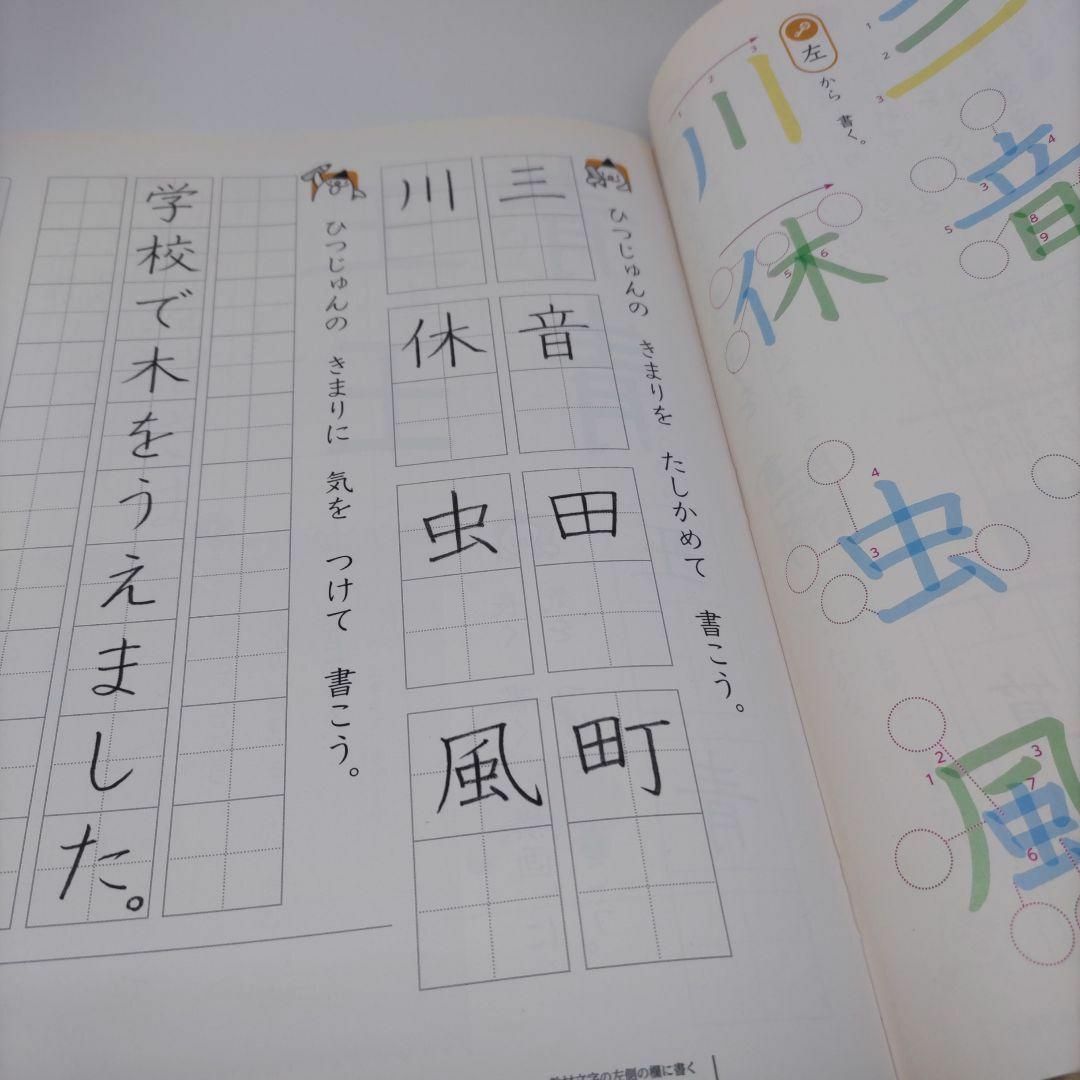 左から 書く。
三
川
音
休
虫
風
ひつじゅんの きまりを たしかめて 書こう。
三
音
田
町
川
休
虫
風
ひつじゅんの きまりに 気を つけて 書こう。
学校で木をうえました。
文字の左側の欄に書く